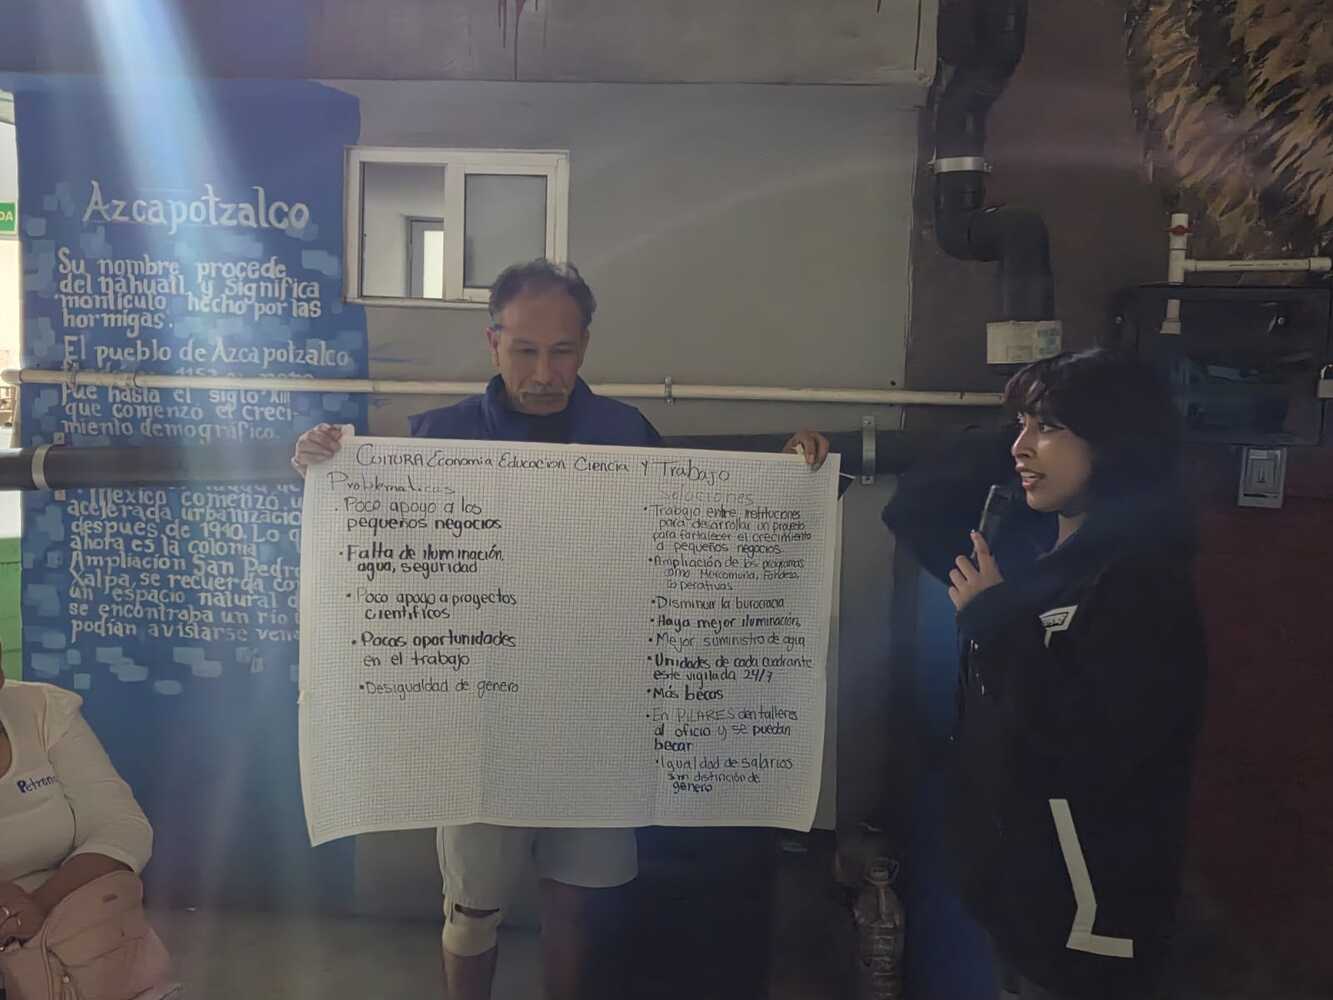 DA
Azcapotzalco
Su nombre procede
del nahuatl y significa
montículo hecho por las
hormigas.
El pueblo de Azcapotzalco
fue hasta el siglo XIII
que comenzó el creci-
miento demográfico.
México comenzó
acelerada urbanizacio
después de 1940. Lo q
ahora es la colonia
Ampliación San Pedro
Xalpa, se recuerda co
un espacio natural d
se encontraba un río
podían avistarse vena
Petron
CULTURA Economia Educacion Ciencia y Trabajo
Problematicas
. Poco apoyo a los
pequeños negocios
• Falta de iluminación,
agua, seguridad
• Poco apoyo a proyectos
científicos
• Pocas oportunidades
en el trabajo
• Desigualdad de genero
Soluciones
• Trabajo entre instituciones
para desarrollar un proyecto
para fortalecer el crecimiento
a pequeños negocios.
• Ampliación de los programas
como Mercomuna, Fondeso,
cooperativas
• Disminuir la burocracia
• Haya mejor iluminación,
• Mejor suministro de agua
• Unidades de cada cuadrante
este vigilada 24/7
• Más becas
• En PILARES den talleres
al oficio y se puedan
becar
• Igualdad de salarios
sin distinción de
genero